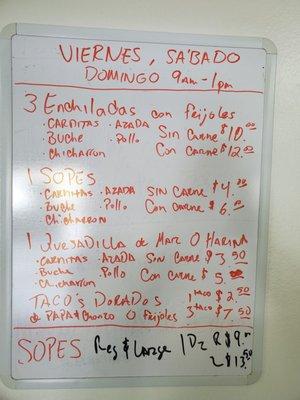 VIERNES, SA'BADO
DOMINGO 9am-1pm
3 Enchiladas con frijoles
· CARNITAS · AZADA SIN CARNE $10.00
· Buche · Pollo Con CARNE $12.00
· Chicharron
1 SOPES
· CARNITAS · AZADA SIN CARNE $4.
· Buche · Pollo Con CARNE $6.00
· Chicharron
1 QUESADILLA de MAIZ O HARINA
· CARNITAS · AZADA SIN CARNE $3.50
· Buche · Pollo Con CARNE $5.
· Chicharron
TACO'S DORADOS 1 TACO $2.50
de PAPA & Chorizo O Frijoles 3 TACO $7.50
SOPES Reg & Large 1 Dz R $9.
L $13.50